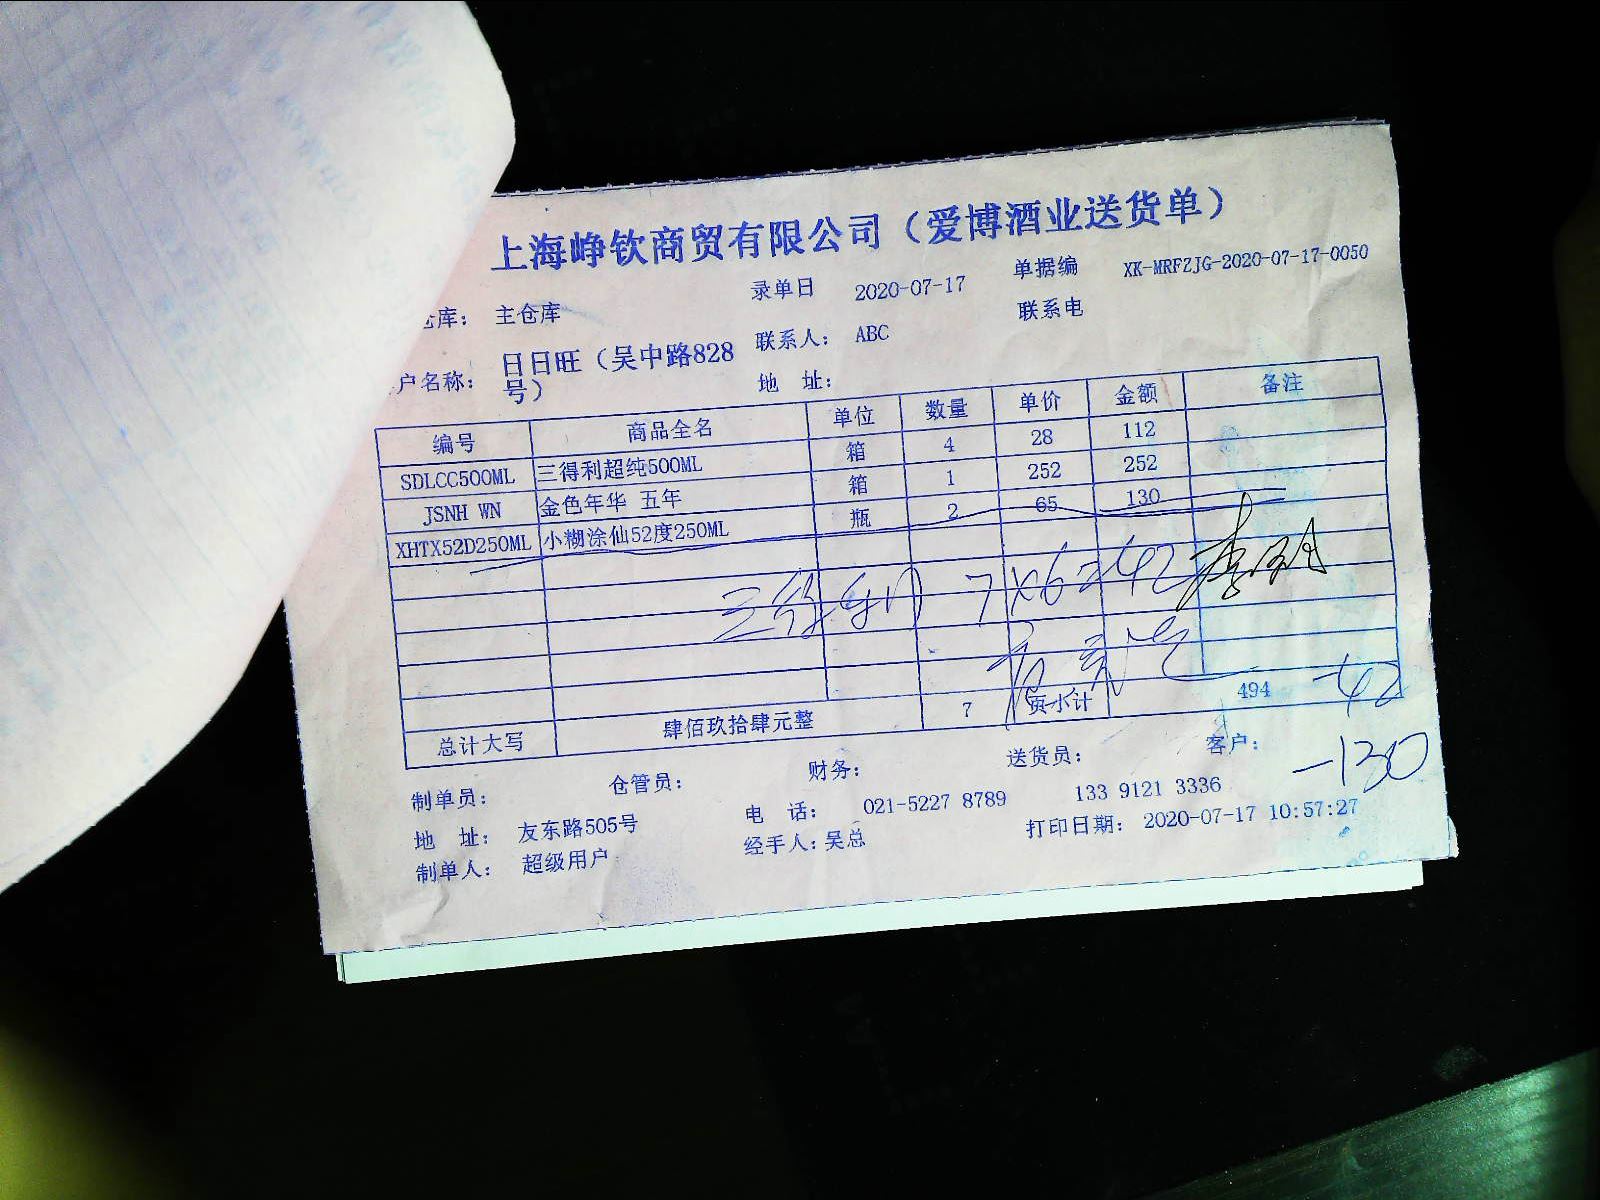 上海峥钦商贸有限公司（爱博酒业送货单）
仓库： 主仓库 录单日 2020-07-17 单据编 XK-MRFZJG-2020-07-17-0050
户名称： 日日旺（吴中路828号） 联系人： ABC 联系电
地 址：
编号 商品全名 单位 数量 单价 金额 备注
SDLCC500ML 三得利超纯500ML 箱 4 28 112
JSNH WN 金色年华 五年 箱 1 252 252
XHTX52D250ML 小糊涂仙52度250ML 瓶 2 65 130
7X6=42
总计大写 肆佰玖拾肆元整 7 页小计 494 -42
-130
制单员： 仓管员： 财务： 送货员： 客户：
地 址： 友东路505号 电 话： 021-5227 8789 133 9121 3336
制单人： 超级用户 经手人：吴总 打印日期： 2020-07-17 10:57:27